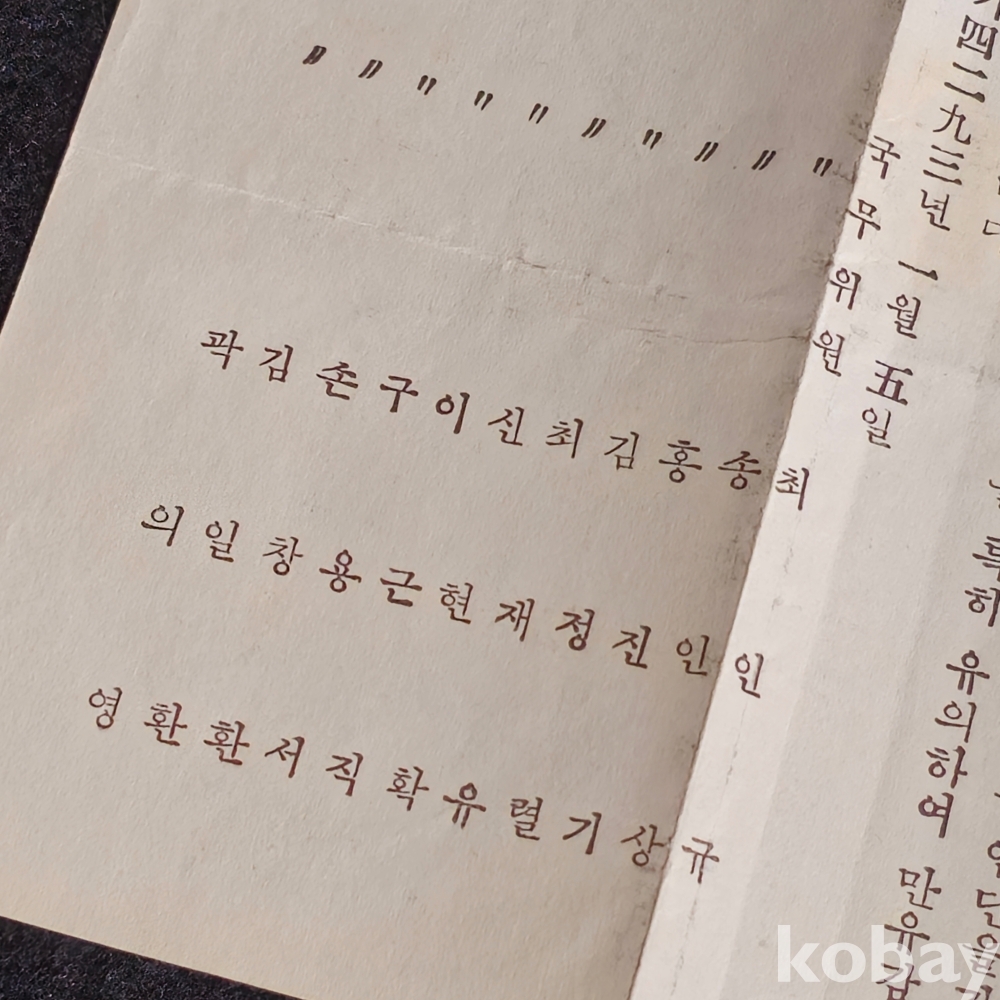 특히 유의하여 만유
四二九三년 一월 五일
국무위원 최인규
〃 송인상
〃 홍진기
〃 김정렬
〃 최재유
〃 신현확
〃 이근직
〃 구용서
〃 손창환
〃 김일환
〃 곽의영
kobay